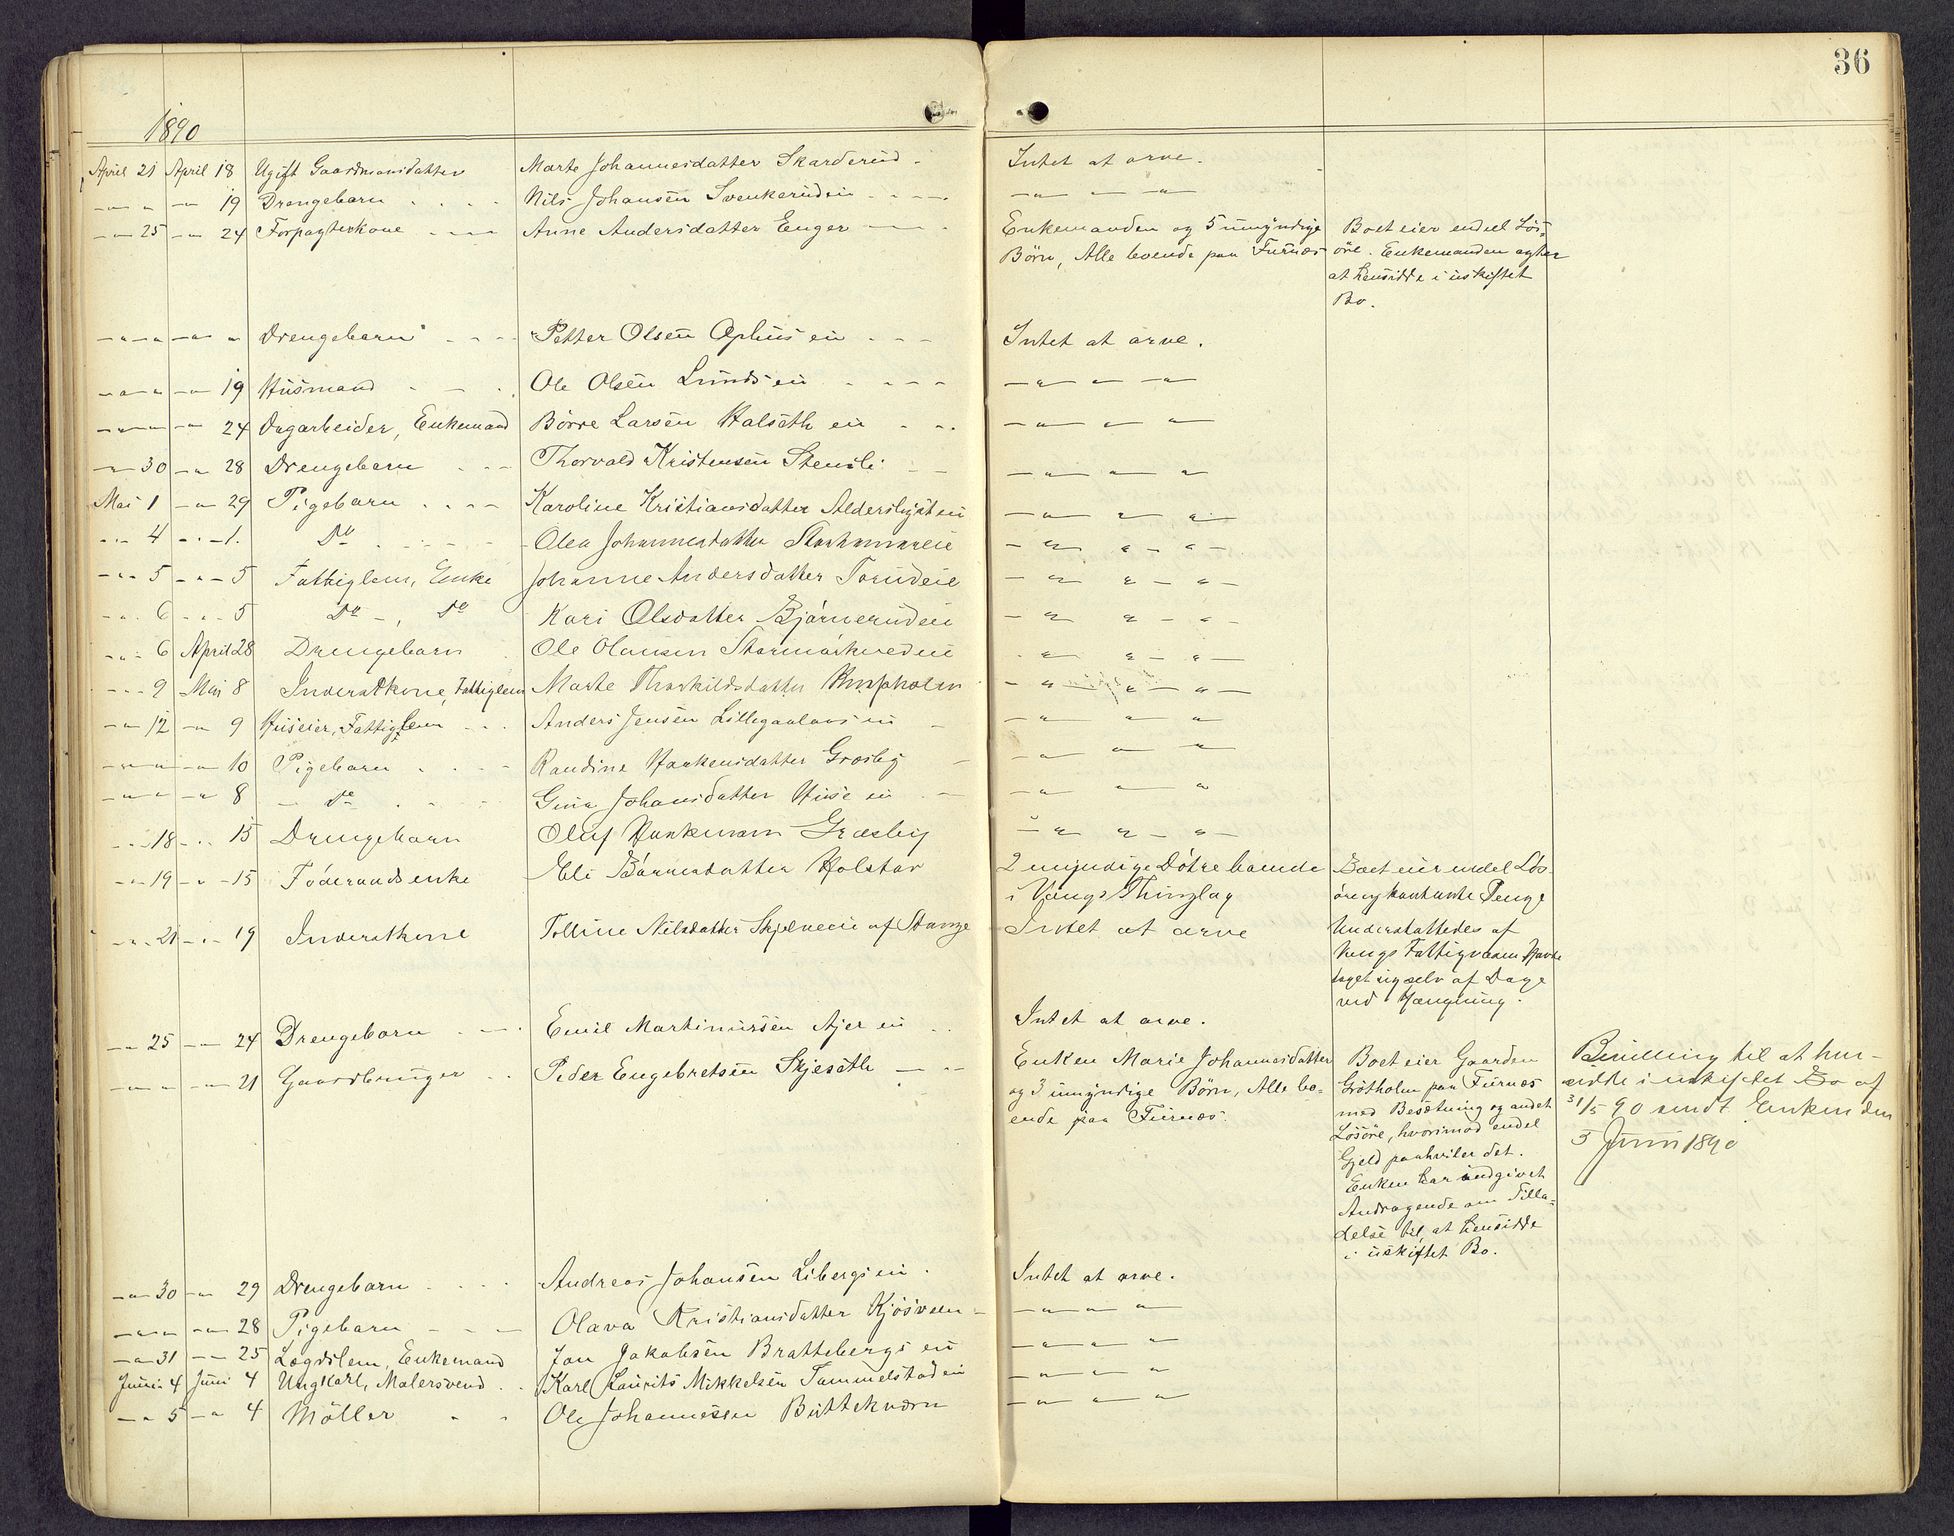 36
1890
April 21 April 18 Ugift Gaardmansdatter Marte Johannesdatter Skarderud - Intet at arve.
-„- „ -„ 19 Drengebarn Nils Johansen Svenkerudei -„- „ -„-
-„- 25 -„ 24 Forpagterkone Anne Andersdatter Enger Enkemanden og 5 umyndige Boet eier endeel Løs-
Børn, Alle boende paa Furnæs øre. Enkemanden agter
at hensidde i uskiftet
Bo.
-„-„- -„- „ Drengebarn Petter Olsen Ophus ei Intet at arve.
-„-„- -„- 19 Husmand Ole Olsen Lunds ei -„- „ -„-
-„-„- -„ 24 Dagarbeider, Enkemand Børre Larsen Halseth ei -„- „ „
-„- 30 -„ 28 Drengebarn Thorvald Kristensen Stensli -„- „ „
Mai 1 -„- 29 Pigebarn Karoline Kristiansdatter -„- „ „
-„- 4 -„-1. Do Olea Johannesdatter -„ „ - „ -
-„- 5 -„- 5 Fattiglem, Enke Johanne Andersdatter Torudeie -„ „ - „ -
-„- 6 -„- 5 Do -, Do Kari Olsdatter Bjørnerudeie -„ „ - „ -
-„- 6 April 28 Drengebarn Ole Olausen -„ „ - „ -
-„- 9 Mai 8 Inderstkone, Fattiglem Marte Thorkildsdatter -„- „ - „ -
-„- 12 -„ 9 Huseier, Fattiglem Anders Jensen ei -„- „ „
-„- „ -„- 10 Pigebarn Randine Haakensdatter Græsby -„- „ „
-„- „ -„ 8 - Do Gina Johansdatter Huse ei -„- „ „
-„- 18 -„- 15 Drengebarn Oluf Haakensen Græsby -„ „ - „ -
-„- 19 -„- 15 Føderaads enke Eli Holstad 2 myndige Døtre boende Boet eier endel Løs-
i Vangs Thinglag øre og kontante Penge
-„- 21 -„- 19 Inderstkone Nilsdatter af Stange Intet at arve Understøttedes af
Vangs Fattigvæsen. Havde
taget sig selv af Dage
ved Hængning.
-„- 25 -„- 24 Drengebarn Emil Martinussen Ajer ei Intet at arve.
-„- „ -„- 21 Gaardbruger Peder Engebretsen Skjeseth Enken Marie Johannesdatter Boet eier Gaarden Bevilling til at hen-
og 3 umyndige Børn, Alle bo- Grøtholm paa Furnæs sidde i uskiftet Bo af
ende paa Furnæs. med Besætning og andet 31/5 90 sendt Enken den
Løsøre, hvorimod endel 5 Juni 1890
Gjeld paahviler det.
Enken har indgivet
Andragende om Tilla-
delse til, at hensidde
i uskiftet Bo.
-„- 30 -„- 29 Drengebarn Andreas Johansen Libergs ei. Intet at arve.
-„-„- -„- 28 Pigebarn Olava Kristiansdatter Kjøsveen -„- „ „
-„- 31 -„- 25 Lægdslem, Enkemand Jon Jakobsen Brattebergs ei -„- „ „
Juni 4 Juni 4 Ungkarl, Malersvend Karl Laurits Mikkelsen Tommelstad ei -„- „ „
-„- 5 -„ 4 Møller Ole Johannessen Buttekværn -„- „ „